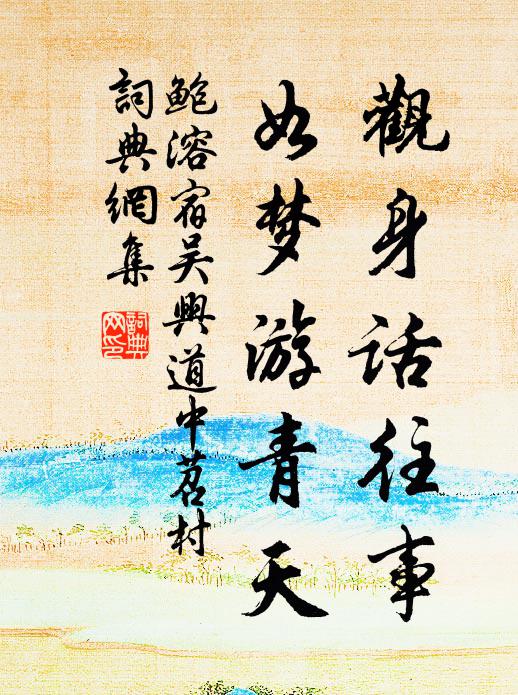 觀身話往事
如梦游青天
鲍溶宿吴興道中苕村
詞典網集
詞典
网印